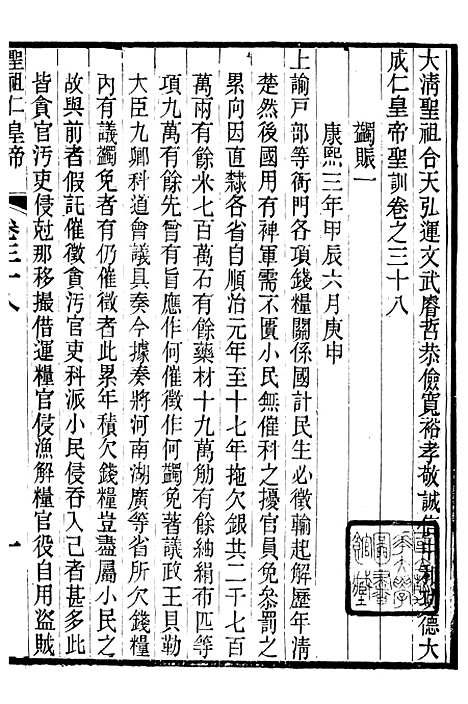 大清聖祖合天弘運文武睿哲恭儉寬裕孝敬誠信中和功德大
成仁皇帝聖訓卷之三十八
蠲賑一
康熙三年甲辰六月庚申
上諭戶部等衙門各項錢糧關係國計民生必徵輸起解歷年清
楚然後國用有裨軍需不匱小民無催科之擾官員免叅罰之
累向直隸各省自順治元年至十七年拖欠銀共二千七百
萬兩有餘米七百萬石有餘藥材十九萬觔有餘紬絹布匹等
項九萬有餘先曾有旨應作何催徵作何蠲免著議政王貝勒
大臣九卿科道會議具奏今據奏將河南湖廣等省所欠錢糧
內有議蠲免者有仍催徵者此累年積欠錢糧豈盡屬小民之
故與前者假託催徵貪污官吏科派小民侵吞入己者甚多此
皆貪官污吏侵尅那移撮借運糧官侵漁解糧官役自用盜賊
聖祖仁皇帝 卷三十八 一